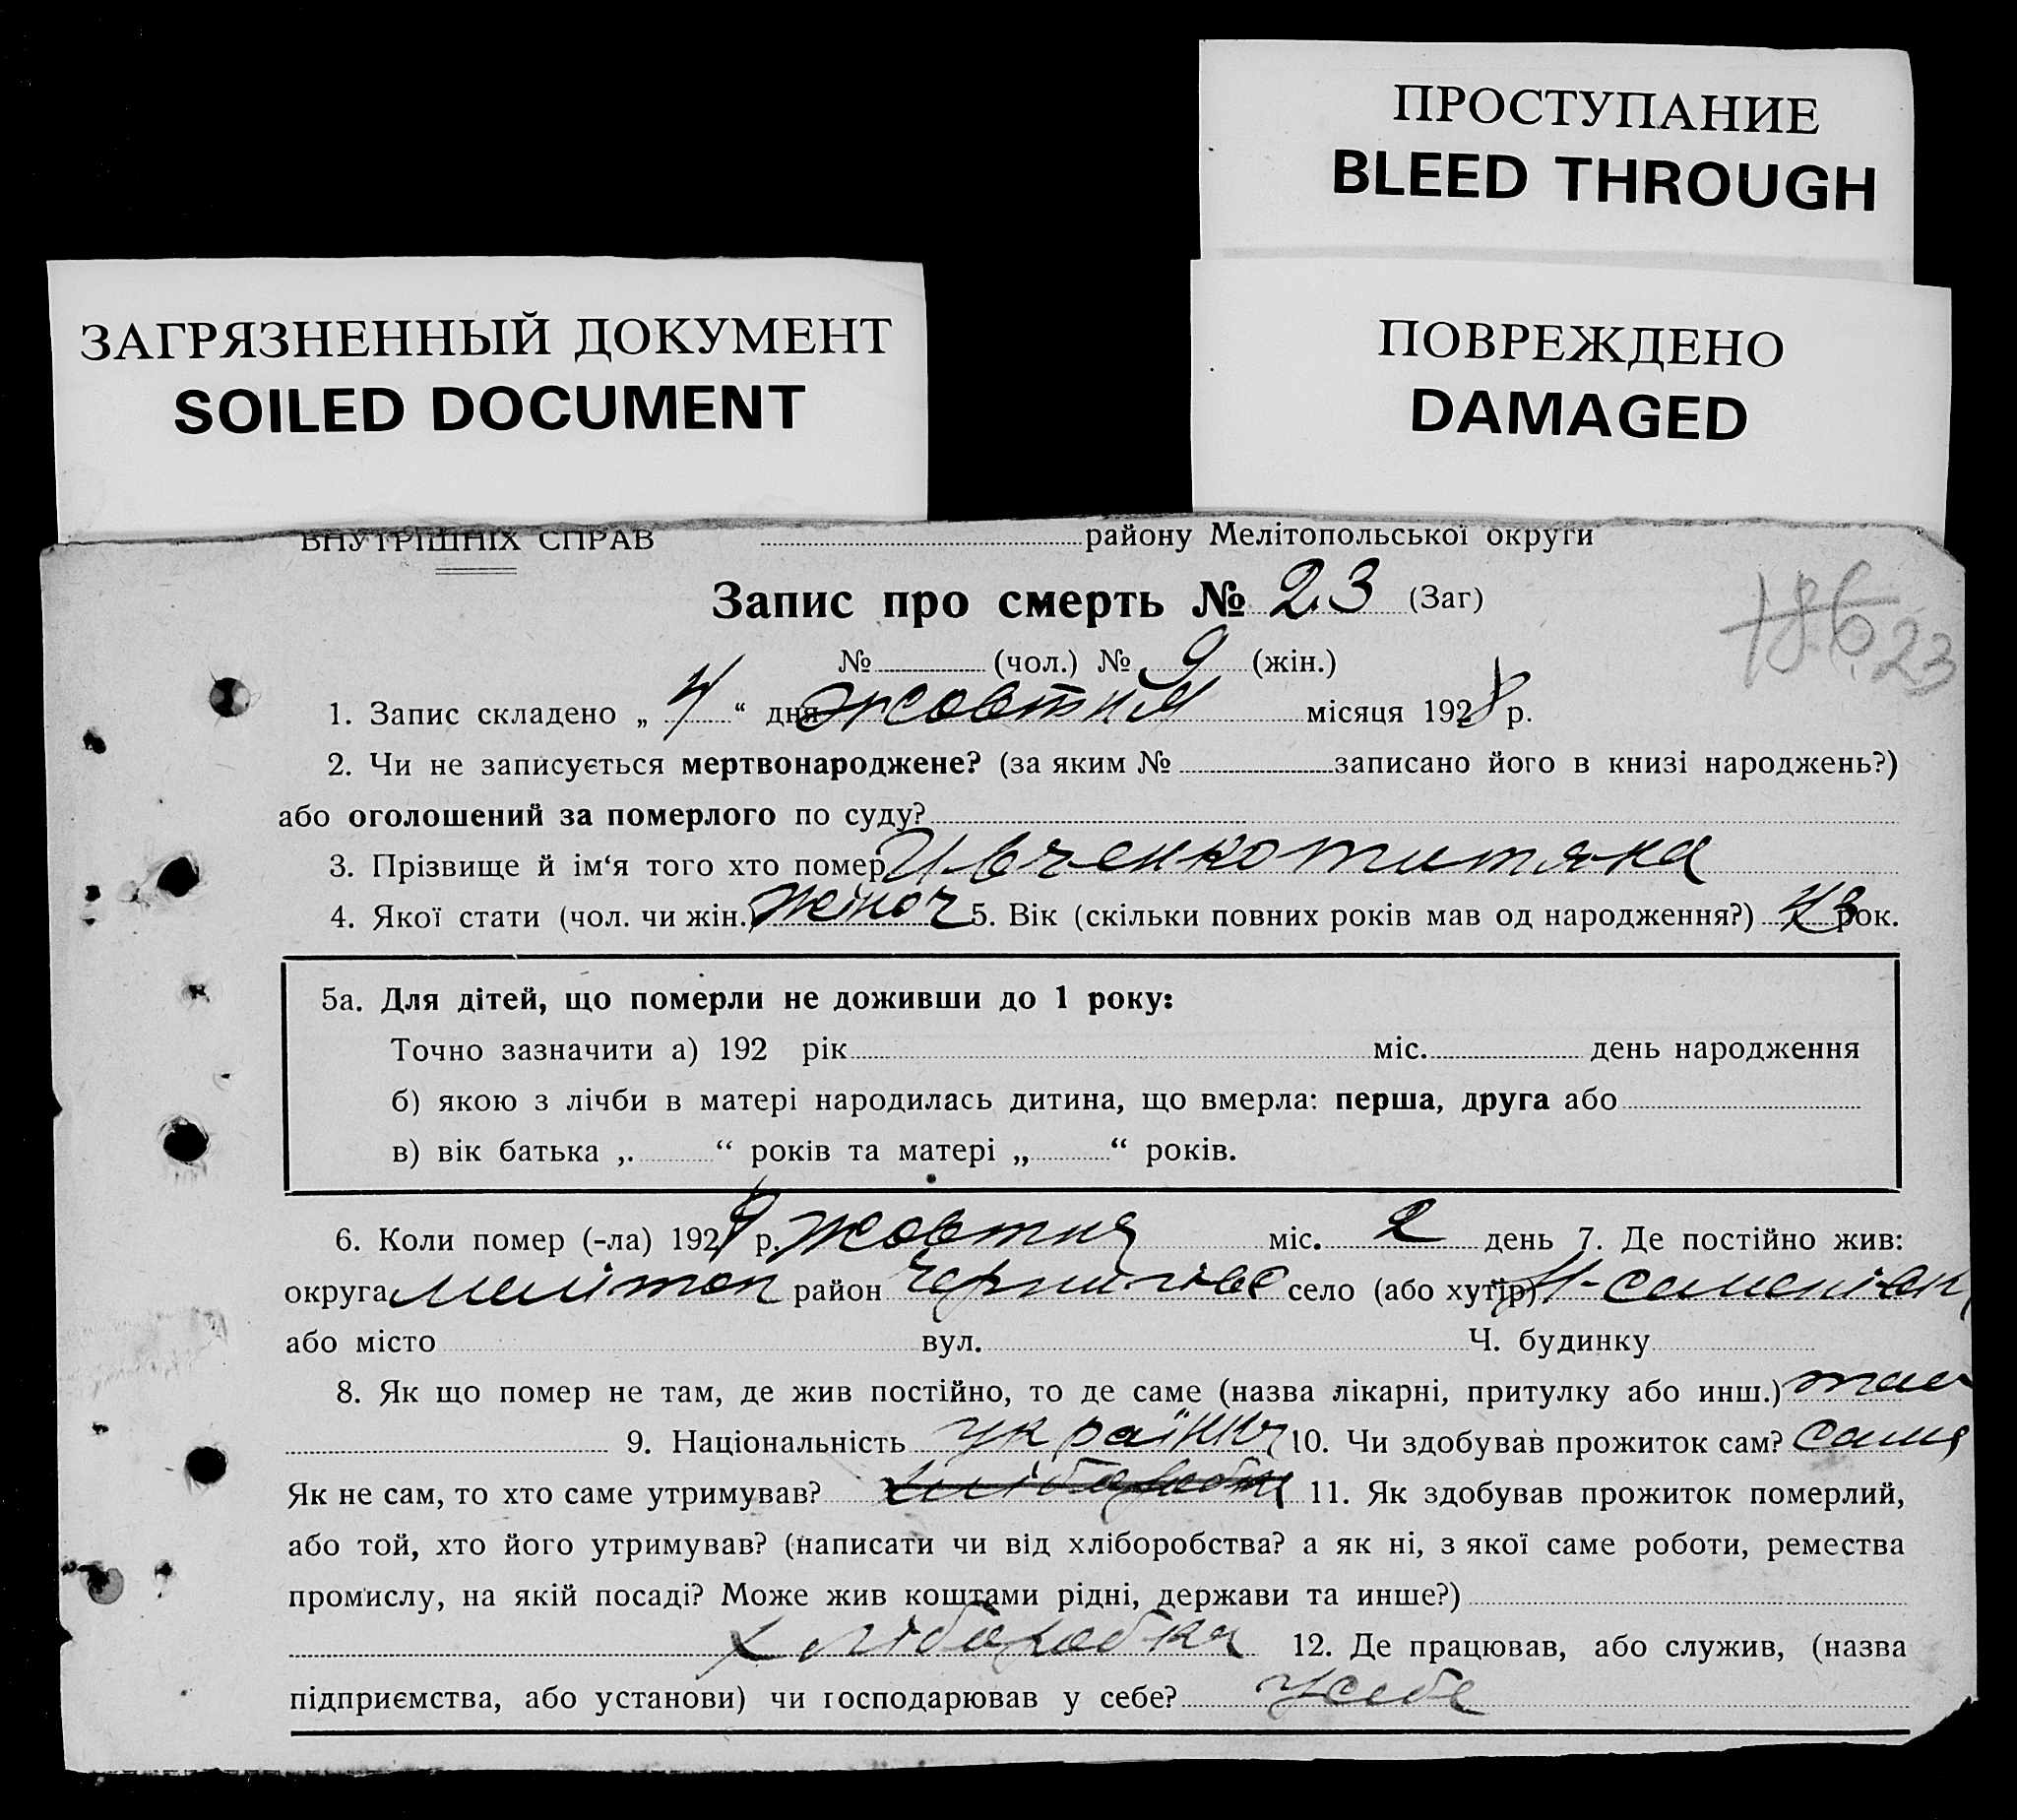 ПРОСТУПАНИЕ
BLEED THROUGH
ЗАГРЯЗНЕННЫЙ ДОКУМЕНТ
SOILED DOCUMENT
ПОВРЕЖДЕНО
DAMAGED
ВНУТРІШНІХ СПРАВ району Мелітопольської округи
Запис про смерть № 23 (Заг)
186 23
№ (чол.) № 9 (жін.)
1. Запис складено „ 4 “ дня жовтня місяця 1928 р.
2. Чи не записується мертвонароджене? (за яким № записано його в книзі народжень?)
або оголошений за померлого по суду?
3. Прізвище й ім‘я того хто помер Ивченко
4. Якої стати (чол. чи жін.) жіноч 5. Вік (скільки повних років мав од народження?) 43 рок.
5а. Для дітей, що померли не доживши до 1 року:
Точно зазначити а) 192 рік міс. день народження
б) якою з лічби в матері народилась дитина, що вмерла: перша, друга або
в) вік батька „ “ років та матері „ “ років.
6. Коли помер (-ла) 192 р. жовтня міс. 2 день 7. Де постійно жив:
округа Мелітоп район Чернигівс село (або хутір)
або місто вул. Ч. будинку
8. Як що помер не там, де жив постійно, то де саме (назва лікарні, притулку або инш.) там
9. Національність українка 10. Чи здобував прожиток сам? сама
Як не сам, то хто саме утримував? 11. Як здобував прожиток померлий,
або той, хто його утримував? (написати чи від хліборобства? а як ні, з якої саме роботи, ремества
промислу, на якій посаді? Може жив коштами рідні, держави та инше?)
хліборобка 12. Де працював, або служив, (назва
підприємства, або установи) чи господарював у себе? у себе